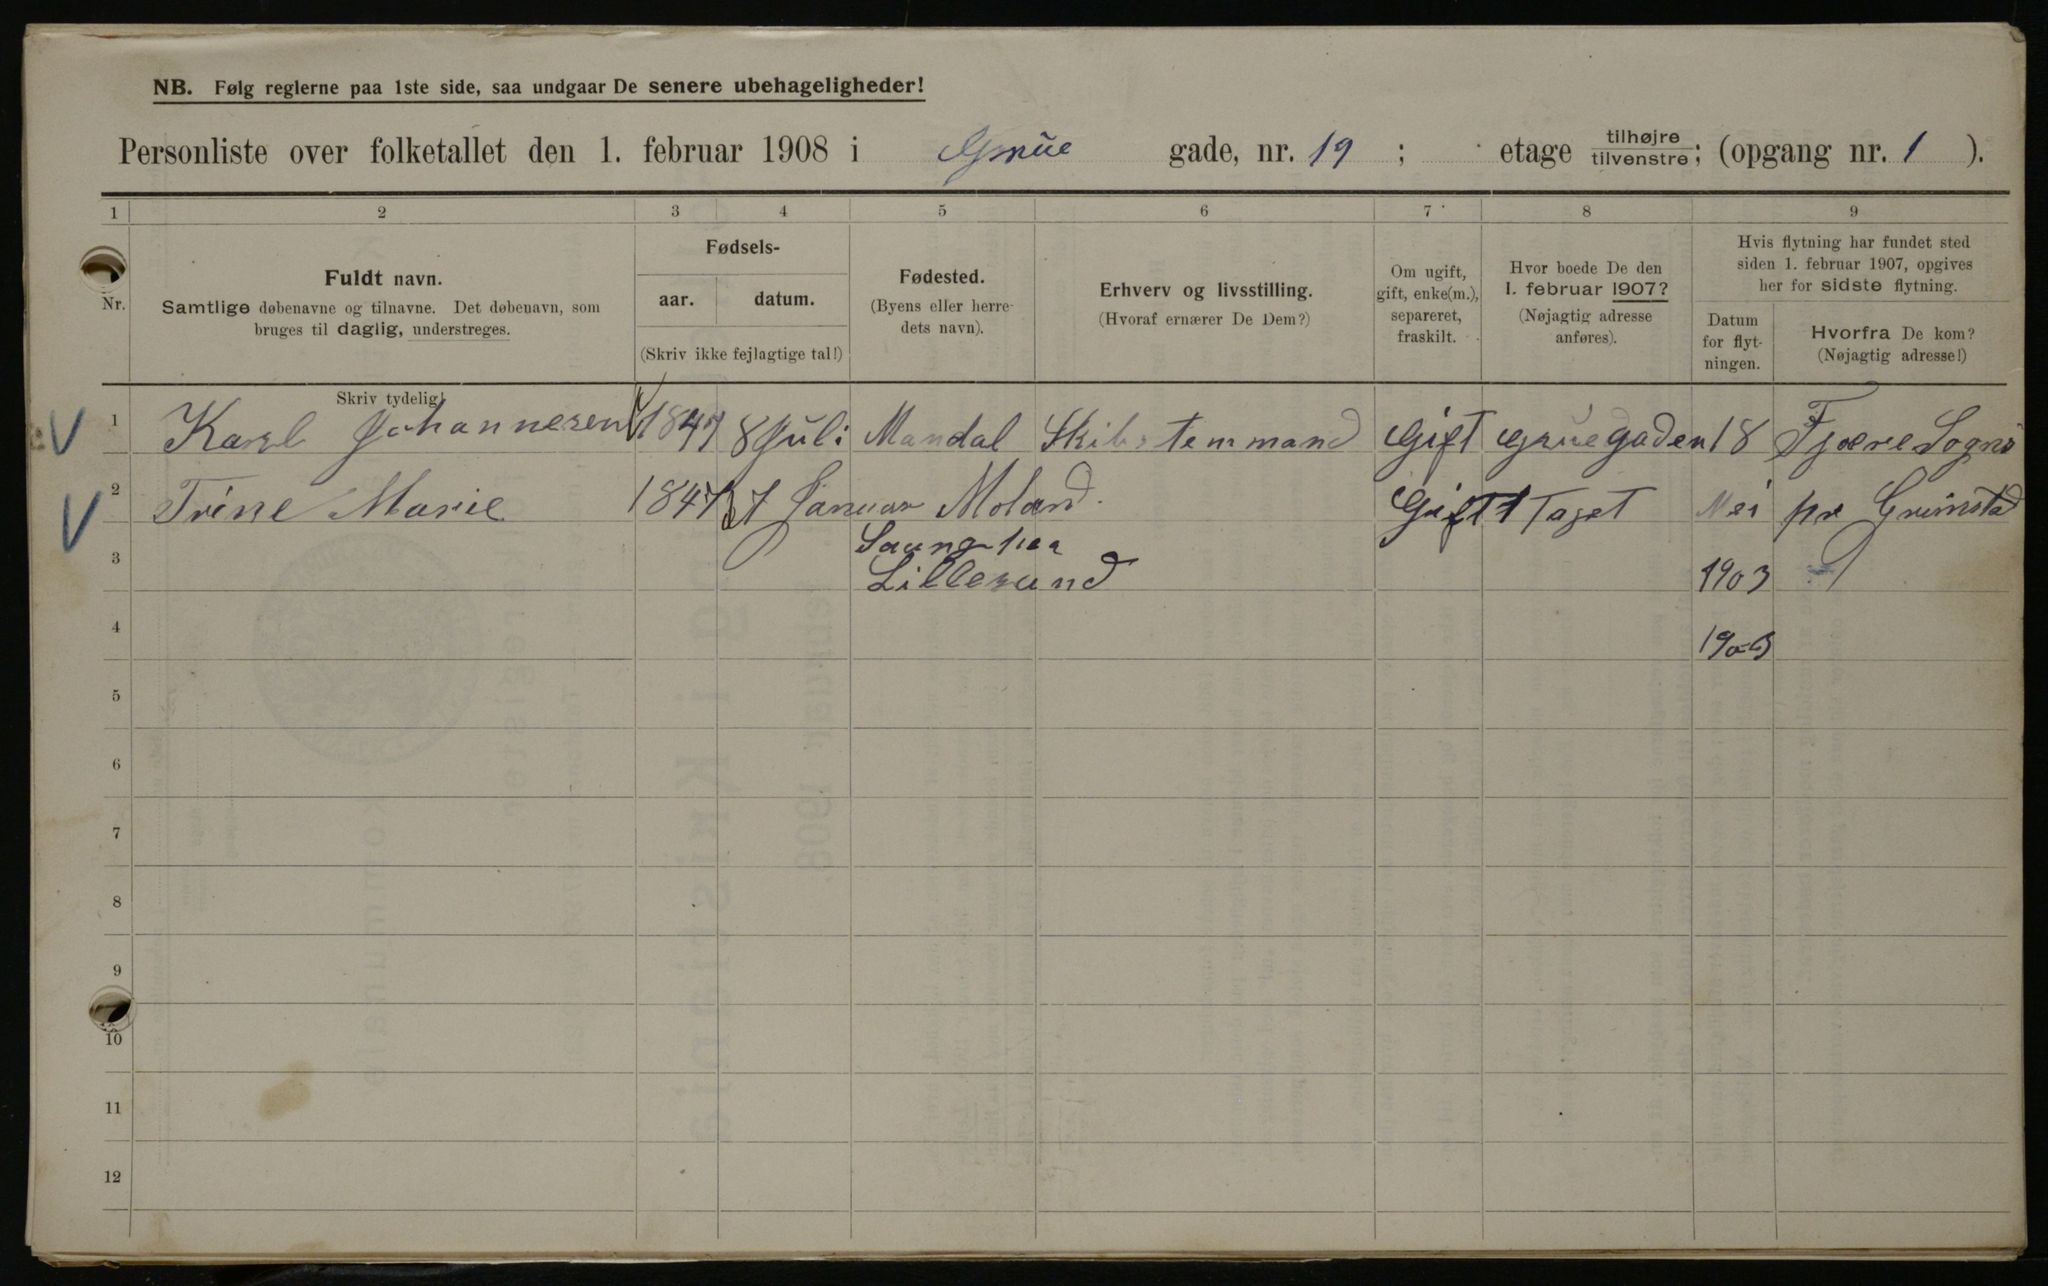 NB. Følg reglerne paa 1ste side, saa undgaar De senere ubehageligheder!
Personliste over folketallet den 1. februar 1908 i Grüe gade, nr. 19 ; etage tilhøjre/tilvenstre; (opgang nr. 1 ).
1 2 3 4 5 6 7 8 9
Nr.
Fuldt navn.
Samtlige døbenavne og tilnavne. Det døbenavn, som
bruges til daglig, understreges.
Skriv tydelig!
Fødsels-
aar. datum.
(Skriv ikke fejlagtige tal!)
Fødested.
(Byens eller herre-
dets navn).
Erhverv og livsstilling.
(Hvoraf ernærer De Dem?)
Om ugift,
gift, enke(m.),
separeret,
fraskilt.
Hvor boede De den
1. februar 1907?
(Nøjagtig adresse
anføres).
Hvis flytning har fundet sted
siden 1. februar 1907, opgives
her for sidste flytning.
Datum
for flyt-
ningen.
Hvorfra De kom?
(Nøjagtig adresse!)
1 Karl Johannesen 1847 8 Juli Mandal Skibstemmand Gift Grüegaden 18 Fjære Sogns
2 Trine Marie 1847 Januar Moland Gift 1 Taget Mei pr Grimstad
3
Lillesand 1903
4 1903
5
6
7
8
9
10
11
12